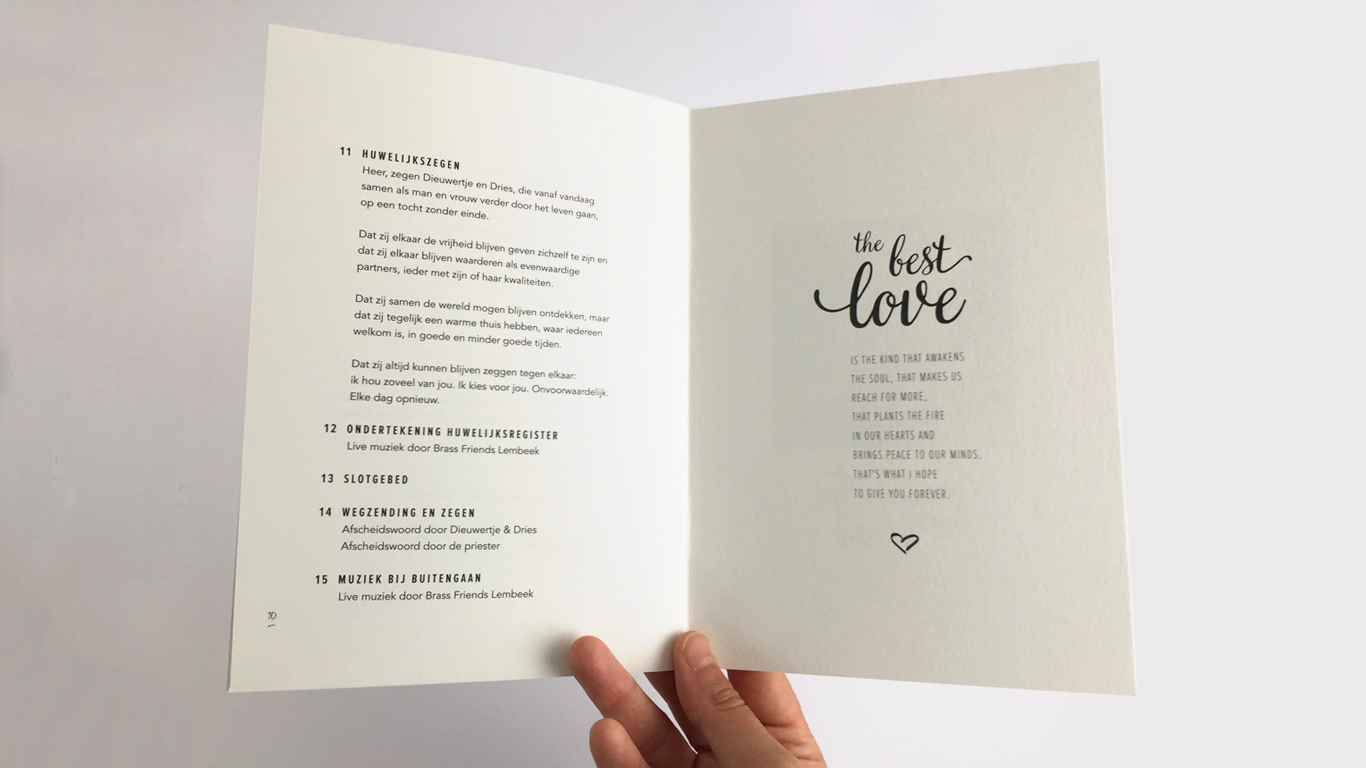 11 HUWELIJKSZEGEN
Heer, zegen Dieuwertje en Dries, die vanaf vandaag
samen als man en vrouw verder door het leven gaan,
op een tocht zonder einde.
Dat zij elkaar de vrijheid blijven geven zichzelf te zijn en
dat zij elkaar blijven waarderen als evenwaardige
partners, ieder met zijn of haar kwaliteiten.
Dat zij samen de wereld mogen blijven ontdekken, maar
dat zij tegelijk een warme thuis hebben, waar iedereen
welkom is, in goede en minder goede tijden.
Dat zij altijd kunnen blijven zeggen tegen elkaar:
ik hou zoveel van jou. Ik kies voor jou. Onvoorwaardelijk.
Elke dag opnieuw.
12 ONDERTEKENING HUWELIJKSREGISTER
Live muziek door Brass Friends Lembeek
13 SLOTGEBED
14 WEGZENDING EN ZEGEN
Afscheidswoord door Dieuwertje & Dries
Afscheidswoord door de priester
15 MUZIEK BIJ BUITENGAAN
Live muziek door Brass Friends Lembeek
10
the best
love
IS THE KIND THAT AWAKENS
THE SOUL, THAT MAKES US
REACH FOR MORE,
THAT PLANTS THE FIRE
IN OUR HEARTS AND
BRINGS PEACE TO OUR MINDS.
THAT'S WHAT I HOPE
TO GIVE YOU FOREVER.